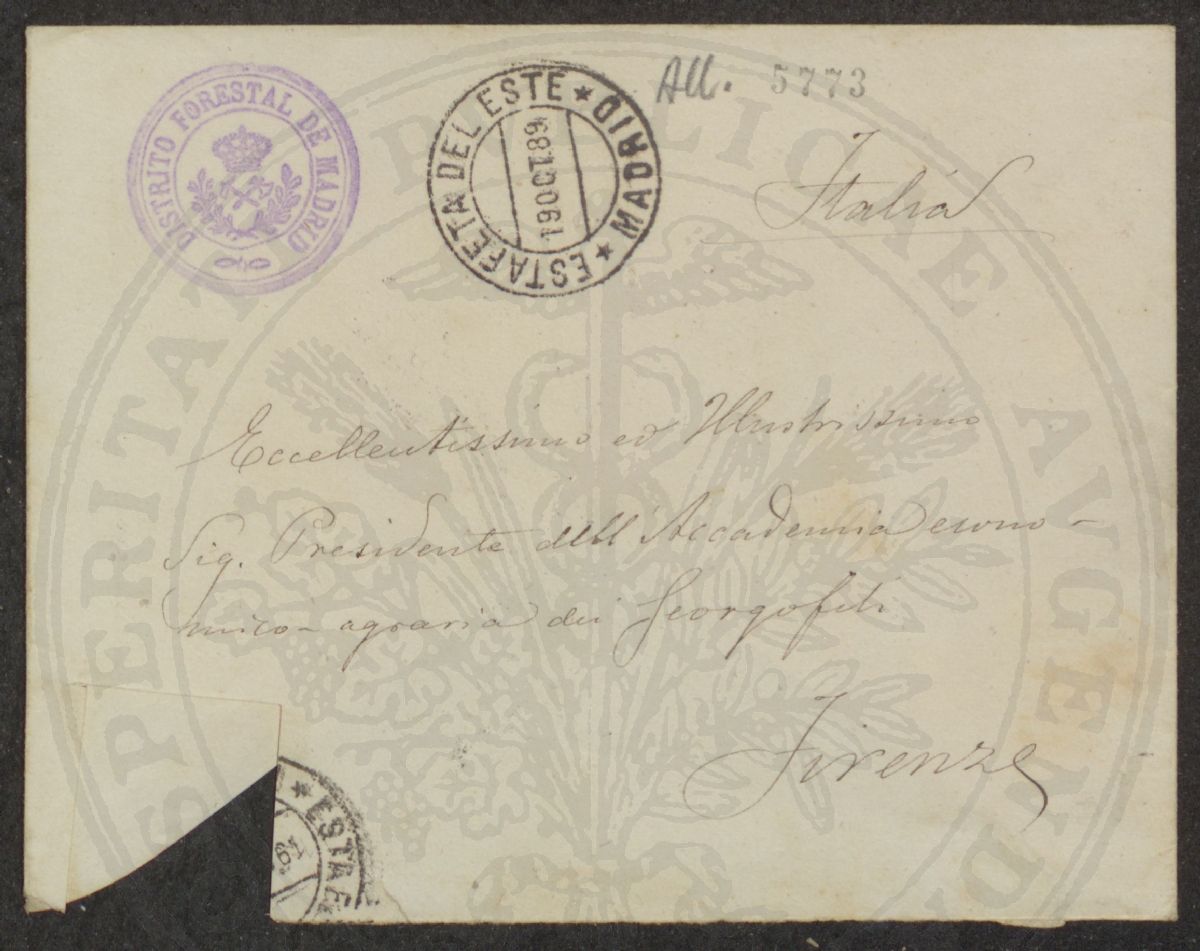 DISTRITO FORESTAL DE MADRID
ESTAFETA DEL ESTE ★ MADRID ★
19 OCT. 89
All. 5773
Italia
Eccellentissimo ed Illustrissimo
Sig. Presidente dell'Accademia econo-
mico-agraria dei Georgofili
Firenze
★ ESTAFE
PROSPERITATI PUBLICAE AVGENDAE